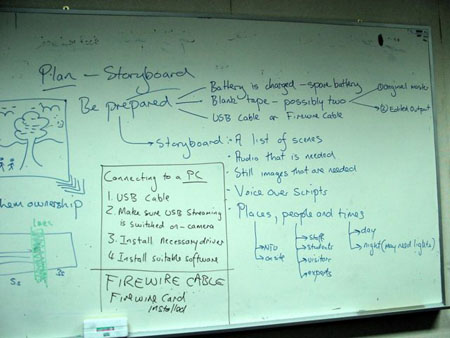 Plan - Storyboard
Be prepared
Battery is charged - spare battery
Blank tape - possibly two
USB Cable or Firewire Cable
① Original master
② Edited Output
Storyboard:
• A list of scenes
• Audio that is needed
• Still images that are needed
• Voice over Scripts
• Places, people and times
staff
students
visitor
experts
day
night (may need lights)
them ownership
Connecting to a PC
1. USB Cable
2. Make sure USB Streaming
is switched on - camera
3. Install necessary driver
4. Install suitable software
FIREWIRE CABLE
Firewire Card
installed